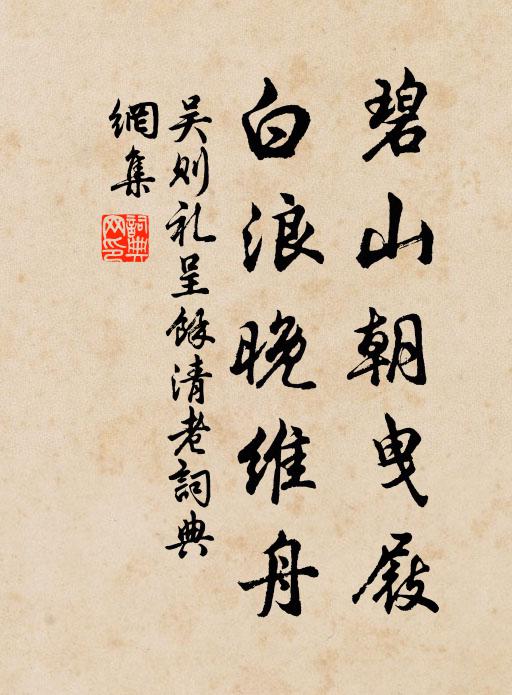 碧山朝曳屐
白浪晚维舟
吴则礼呈馀清老詞典
網集
詞典网印